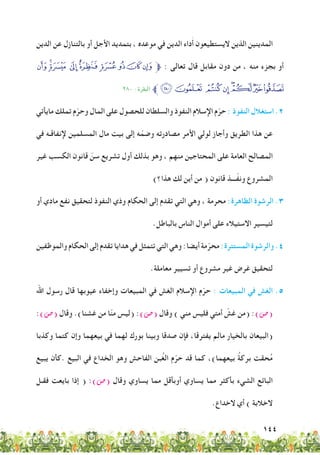 المدينين الذين لايستطيعون أداء الدين في موعده ، بتمديد الأجل أو بالتنازل عن الدين
أو بجزء منه ، من دون مقابل قال تعالى : ﴿ وَإِن كَانَ ذُو عُسْرَةٍ فَنَظِرَةٌ إِلَىٰ مَيْسَرَةٍ وَأَن
تَصَدَّقُوا خَيْرٌ لَّكُمْ إِن كُنتُمْ تَعْلَمُونَ ﴾ البقرة: ٢٨٠
٢. استغلال النفوذ : حرّم الإسلام النفوذ والسلطان للحصول على المال وحرّم تملك مايأتي
عن هذا الطريق وأجاز لولي الأمر مصادرته وضمّه إلى بيت مال المسلمين لإنفاقـه في
المصالح العامة على المحتاجين منهم ، وهو بذلك أول تشريع سنّ قانون الكسب غير
المشروع ونفّـذ قانون ( من أين لك هذا؟)
٣. الرشوة الظاهرة : محرمة ، وهي التي تقدم إلى الحكام وذي النفوذ لتحقيق نفع مادي أو
لتيسير الاستيلاء على أموال الناس بالباطل.
٤. والرشوة المستترة : محرّمة أيضا : وهي التي تتمثل في هدايا تقدم إلى الحكام والموظفين
لتحقيق غرض غير مشروع أو تسيير معاملة.
٥. الغش في المبيعات : حرّم الإسلام الغش في المبيعات وإخفاء عيوبها قال رسول الله
(ص): (من غشّ أمتي فليس مني ) وقال (ص): (ليس منّا من غشنا). وقال (ص):
(البيعان بالخيار مالم يفترقا، فإن صدقا وبينا بورك لهما في بيعهما وإن كتما وكذبا
مُحقت بركةُ بيعهما)، كما قد حرّم الغُبن الفاحش وهو الخداع في البيع .كأن يبيع
البائع الشيء بأكثر مما يساوي أوبأقل مما يساوي وقال (ص): ( إذا بايعت فقل
لاخلابة ) أي لاخداع.
١٤٤